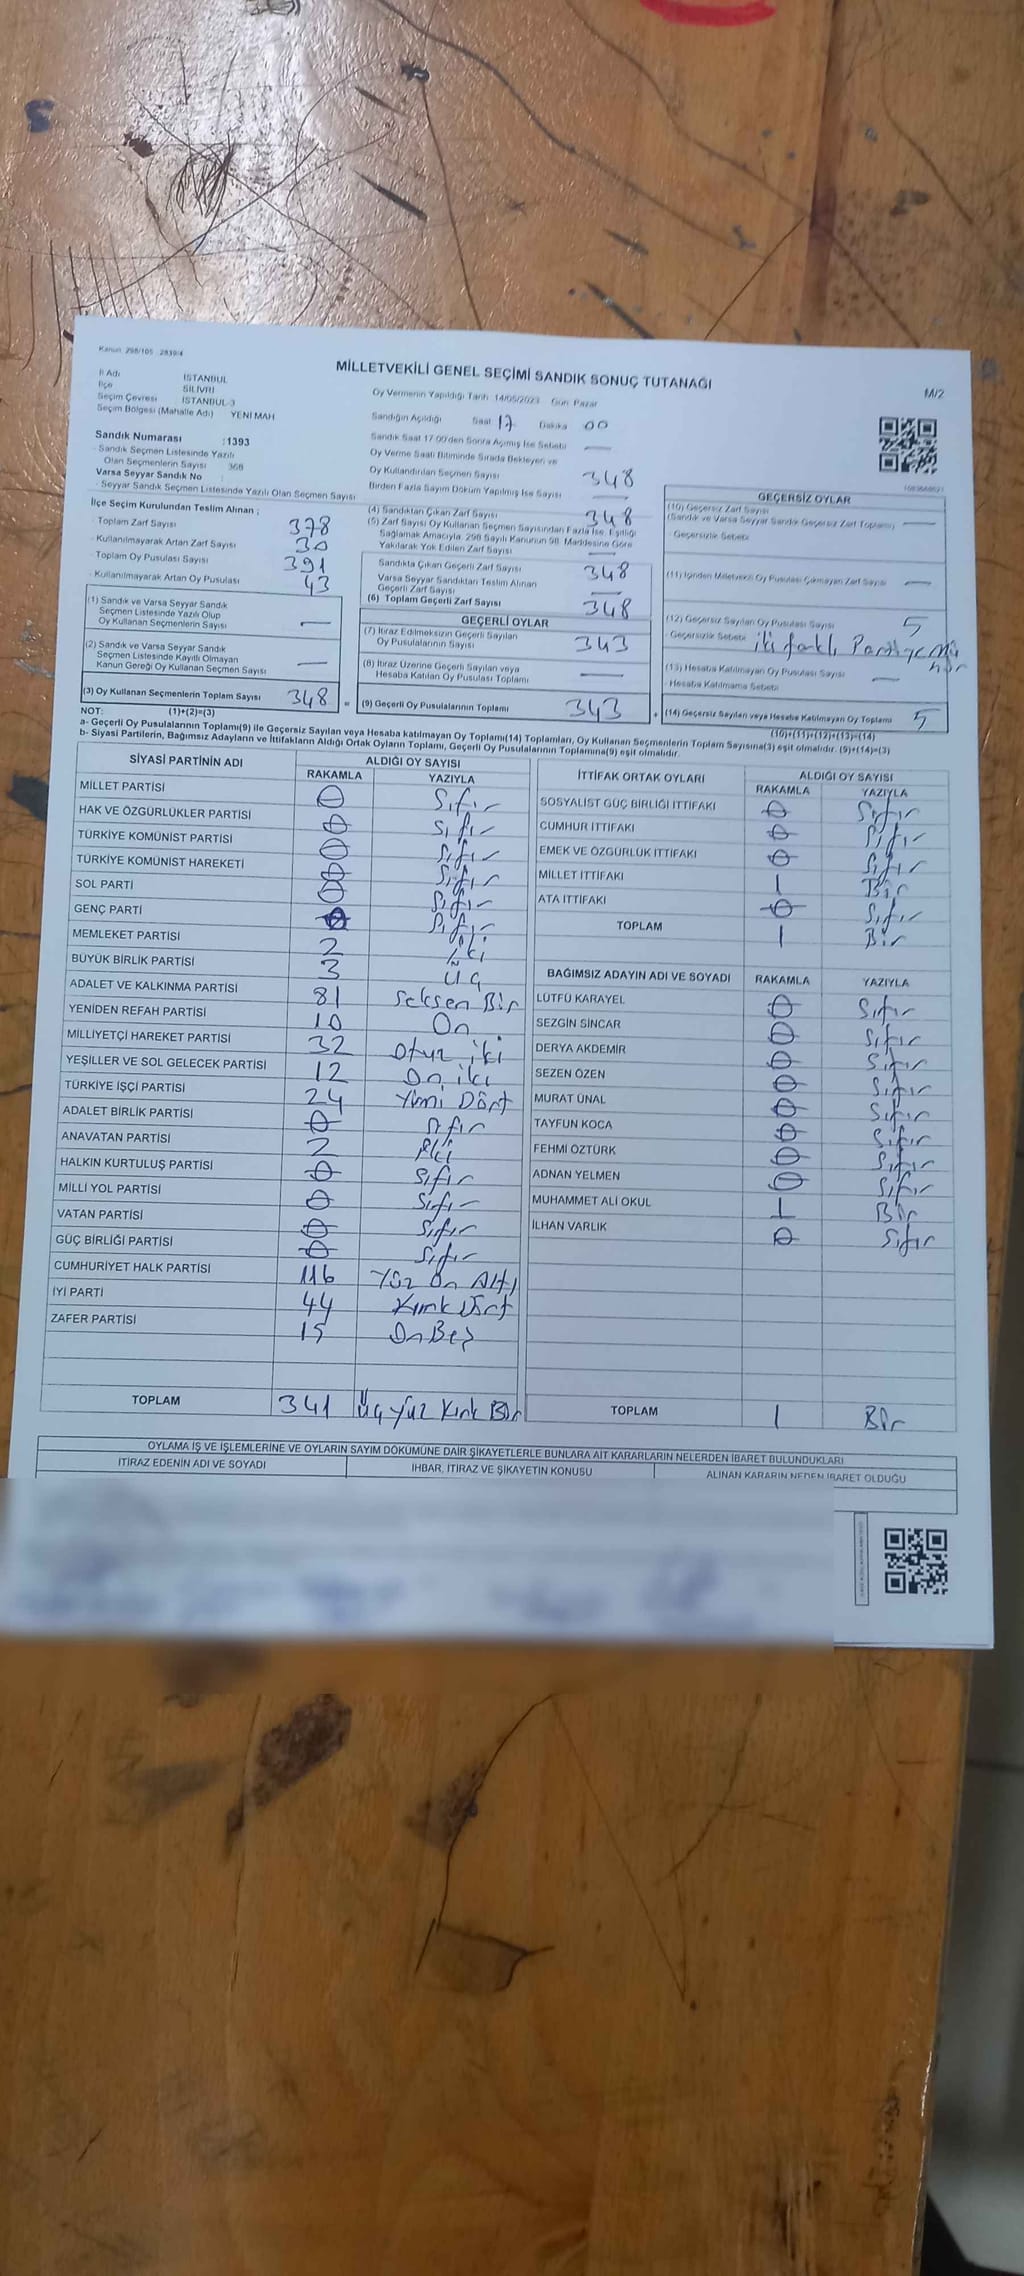 Kanun: 298/105 - 2839/4
MİLLETVEKİLİ GENEL SEÇİMİ SANDIK SONUÇ TUTANAĞI
M/2
İl Adı : İSTANBUL
İlçe : SİLİVRİ
Seçim Çevresi : İSTANBUL-3
Seçim Bölgesi (Mahalle Adı) : YENİ MAH
Sandık Numarası : 1393
- Sandık Seçmen Listesinde Yazılı
Olan Seçmenlerin Sayısı : 368
Varsa Seyyar Sandık No :
- Seyyar Sandık Seçmen Listesinde Yazılı Olan Seçmen Sayısı :
Oy Vermenin Yapıldığı Tarih: 14/05/2023 Gün: Pazar
Sandığın Açıldığı Saat 17 Dakika 00
Sandık Saat 17.00'den Sonra Açılmış İse Sebebi —
Oy Verme Saati Bitiminde Sırada Bekleyen ve
Oy Kullandırılan Seçmen Sayısı 348
Birden Fazla Sayım Döküm Yapılmış İse Sayısı —
İlçe Seçim Kurulundan Teslim Alınan ;
- Toplam Zarf Sayısı 378
- Kullanılmayarak Artan Zarf Sayısı 30
- Toplam Oy Pusulası Sayısı 391
- Kullanılmayarak Artan Oy Pusulası 43
(1) Sandık ve Varsa Seyyar Sandık
Seçmen Listesinde Yazılı Olup
Oy Kullanan Seçmenlerin Sayısı —
(2) Sandık ve Varsa Seyyar Sandık
Seçmen Listesinde Kayıtlı Olmayan
Kanun Gereği Oy Kullanan Seçmen Sayısı —
(3) Oy Kullanan Seçmenlerin Toplam Sayısı 348 =
(4) Sandıktan Çıkan Zarf Sayısı 348
(5) Zarf Sayısı Oy Kullanan Seçmen Sayısından Fazla İse, Eşitliği
Sağlamak Amacıyla, 298 Sayılı Kanunun 98. Maddesine Göre
Yakılarak Yok Edilen Zarf Sayısı —
Sandıkta Çıkan Geçerli Zarf Sayısı 348
Varsa Seyyar Sandıktan Teslim Alınan
Geçerli Zarf Sayısı —
(6) Toplam Geçerli Zarf Sayısı 348
GEÇERLİ OYLAR
(7) İtiraz Edilmeksizin Geçerli Sayılan
Oy Pusulalarının Sayısı 343
(8) İtiraz Üzerine Geçerli Sayılan veya
Hesaba Katılan Oy Pusulası Toplamı —
(9) Geçerli Oy Pusulalarının Toplamı 343 +
GEÇERSİZ OYLAR
(10) Geçersiz Zarf Sayısı
(Sandık ve Varsa Seyyar Sandık Geçersiz Zarf Toplamı) —
- Geçersizlik Sebebi:
(11) İçinden Milletvekili Oy Pusulası Çıkmayan Zarf Sayısı —
(12) Geçersiz Sayılan Oy Pusulası Sayısı 5
- Geçersizlik Sebebi: iki farklı Partiye
(13) Hesaba Katılmayan Oy Pusulası Sayısı —
- Hesaba Katılmama Sebebi:
(14) Geçersiz Sayılan veya Hesaba Katılmayan Oy Toplamı 5
NOT: (1)+(2)=(3)
(10)+(11)+(12)+(13)=(14)
a- Geçerli Oy Pusulalarının Toplamı(9) ile Geçersiz Sayılan veya Hesaba katılmayan Oy Toplamı(14) Toplamları, Oy Kullanan Seçmenlerin Toplam Sayısına(3) eşit olmalıdır. (9)+(14)=(3)
b- Siyasi Partilerin, Bağımsız Adayların ve İttifakların Aldığı Ortak Oyların Toplamı, Geçerli Oy Pusulalarının Toplamına(9) eşit olmalıdır.
SİYASİ PARTİNİN ADI ALDIĞI OY SAYISI
RAKAMLA YAZIYLA
MİLLET PARTİSİ 0 Sıfır
HAK VE ÖZGÜRLÜKLER PARTİSİ 0 Sıfır
TÜRKİYE KOMÜNİST PARTİSİ 0 Sıfır
TÜRKİYE KOMÜNİST HAREKETİ 0 Sıfır
SOL PARTİ 0 Sıfır
GENÇ PARTİ 0 Sıfır
MEMLEKET PARTİSİ 2 İki
BÜYÜK BİRLİK PARTİSİ 3 Üç
ADALET VE KALKINMA PARTİSİ 81 Seksen Bir
YENİDEN REFAH PARTİSİ 10 On
MİLLİYETÇİ HAREKET PARTİSİ 32 Otuz iki
YEŞİLLER VE SOL GELECEK PARTİSİ 12 On iki
TÜRKİYE İŞÇİ PARTİSİ 24 Yimi Dört
ADALET BİRLİK PARTİSİ 0 Sıfır
ANAVATAN PARTİSİ 2 İki
HALKIN KURTULUŞ PARTİSİ 0 Sıfır
MİLLİ YOL PARTİSİ 0 Sıfır
VATAN PARTİSİ 0 Sıfır
GÜÇ BİRLİĞİ PARTİSİ 0 Sıfır
CUMHURİYET HALK PARTİSİ 116 Yüz On Altı
İYİ PARTİ 44 Kırk Dört
ZAFER PARTİSİ 15 On Beş
TOPLAM 341 Üç Yüz Kırk Bir
İTTİFAK ORTAK OYLARI ALDIĞI OY SAYISI
RAKAMLA YAZIYLA
SOSYALİST GÜÇ BİRLİĞİ İTTİFAKI 0 Sıfır
CUMHUR İTTİFAKI 0 Sıfır
EMEK VE ÖZGÜRLÜK İTTİFAKI 0 Sıfır
MİLLET İTTİFAKI 1 Bir
ATA İTTİFAKI 0 Sıfır
TOPLAM 1 Bir
BAĞIMSIZ ADAYIN ADI VE SOYADI RAKAMLA YAZIYLA
LÜTFÜ KARAYEL 0 Sıfır
SEZGİN SİNCAR 0 Sıfır
DERYA AKDEMİR 0 Sıfır
SEZEN ÖZEN 0 Sıfır
MURAT ÜNAL 0 Sıfır
TAYFUN KOCA 0 Sıfır
FEHMİ ÖZTÜRK 0 Sıfır
ADNAN YELMEN 0 Sıfır
MUHAMMET ALİ OKUL 1 Bir
İLHAN VARLIK 0 Sıfır
TOPLAM 1 Bir
OYLAMA İŞ VE İŞLEMLERİNE VE OYLARIN SAYIM DÖKÜMÜNE DAİR ŞİKAYETLERLE BUNLARA AİT KARARLARIN NELERDEN İBARET BULUNDUKLARI
İTİRAZ EDENİN ADI VE SOYADI İHBAR, İTİRAZ VE ŞİKAYETİN KONUSU ALINAN KARARIN NEDEN İBARET OLDUĞU